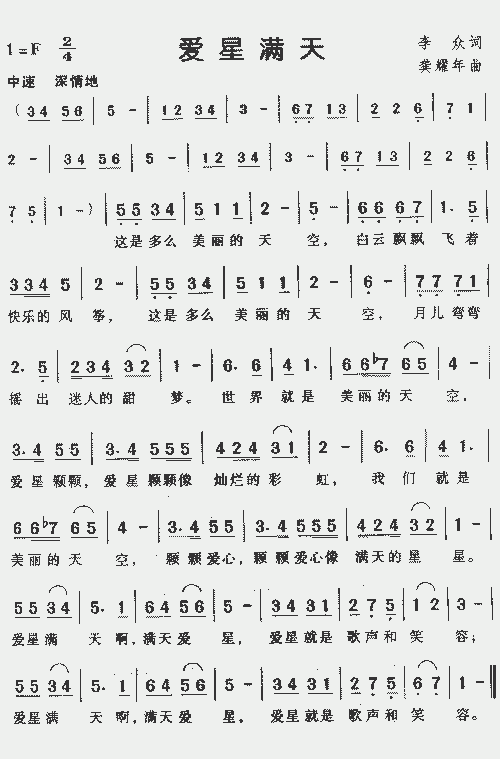 1=F 2/4 爱星满天 李众词
龚耀年曲
中速 深情地
(34 56 | 5 - | 12 34 | 3 - | 67 13 | 2 2 6 | 7 1 |
2 - | 34 56 | 5 - | 12 34 | 3 - | 67 13 | 2 2 6 |
7 5 | 1 -) | 55 34 | 5 1 1 | 2 - | 5 - | 66 67 | 1. 5 |
这是多么 美丽的 天 空, 白云飘飘 飞着
334 5 | 2 - | 55 34 | 5 1 1 | 2 - | 6 - | 77 71 |
快乐的风 筝, 这是多么 美丽的 天 空, 月儿弯弯
2. 5 | 234 32 | 1 - | 6. 6 | 4 1. | 66♭7 65 | 4 - |
摇出 迷人的甜 梦。 世界 就是 美丽的天 空,
3.4 55 | 3.4 555 | 424 31 | 2 - | 6. 6 | 4 1. |
爱星颗颗, 爱星颗颗像 灿烂的彩 虹, 我们 就是
66♭7 65 | 4 - | 3.4 55 | 3.4 555 | 424 32 | 1 - |
美丽的天 空, 颗颗爱心, 颗颗爱心像 满天的星 星。
55 34 | 5. 1 | 64 56 | 5 - | 34 31 | 2 7 5 | 1 2 | 3 - |
爱星满 天啊, 满天爱 星, 爱星就是 歌声和 笑 容;
55 34 | 5. 1 | 64 56 | 5 - | 34 31 | 2 7 5 | 6 7 | 1 - ‖
爱星满 天啊, 满天爱 星, 爱星就是 歌声和 笑 容。